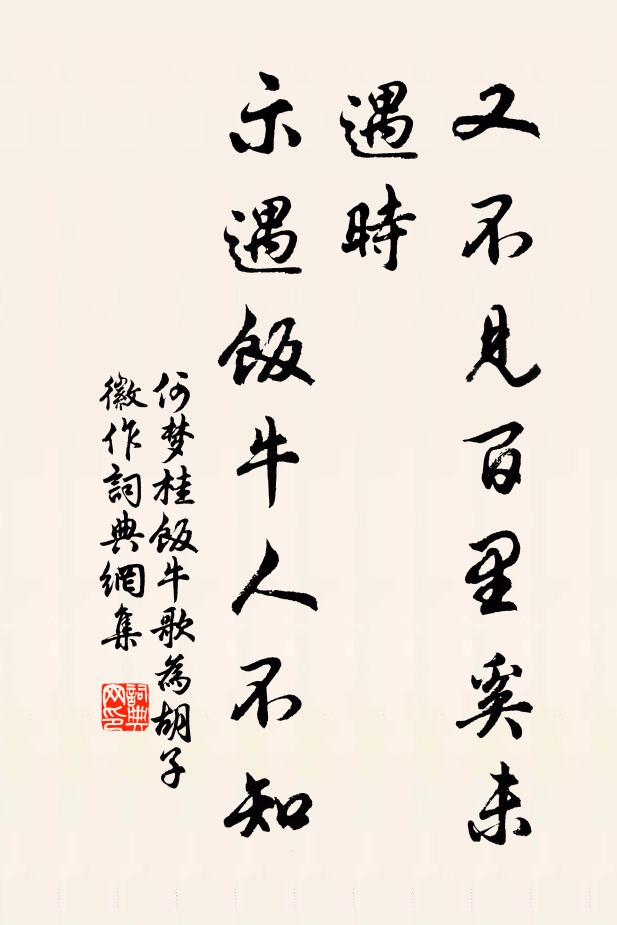 又不見百里奚未
遇時
示遇飯牛人不知
何梦桂飯牛歌為胡子
徽作詞典網集
詞典网印